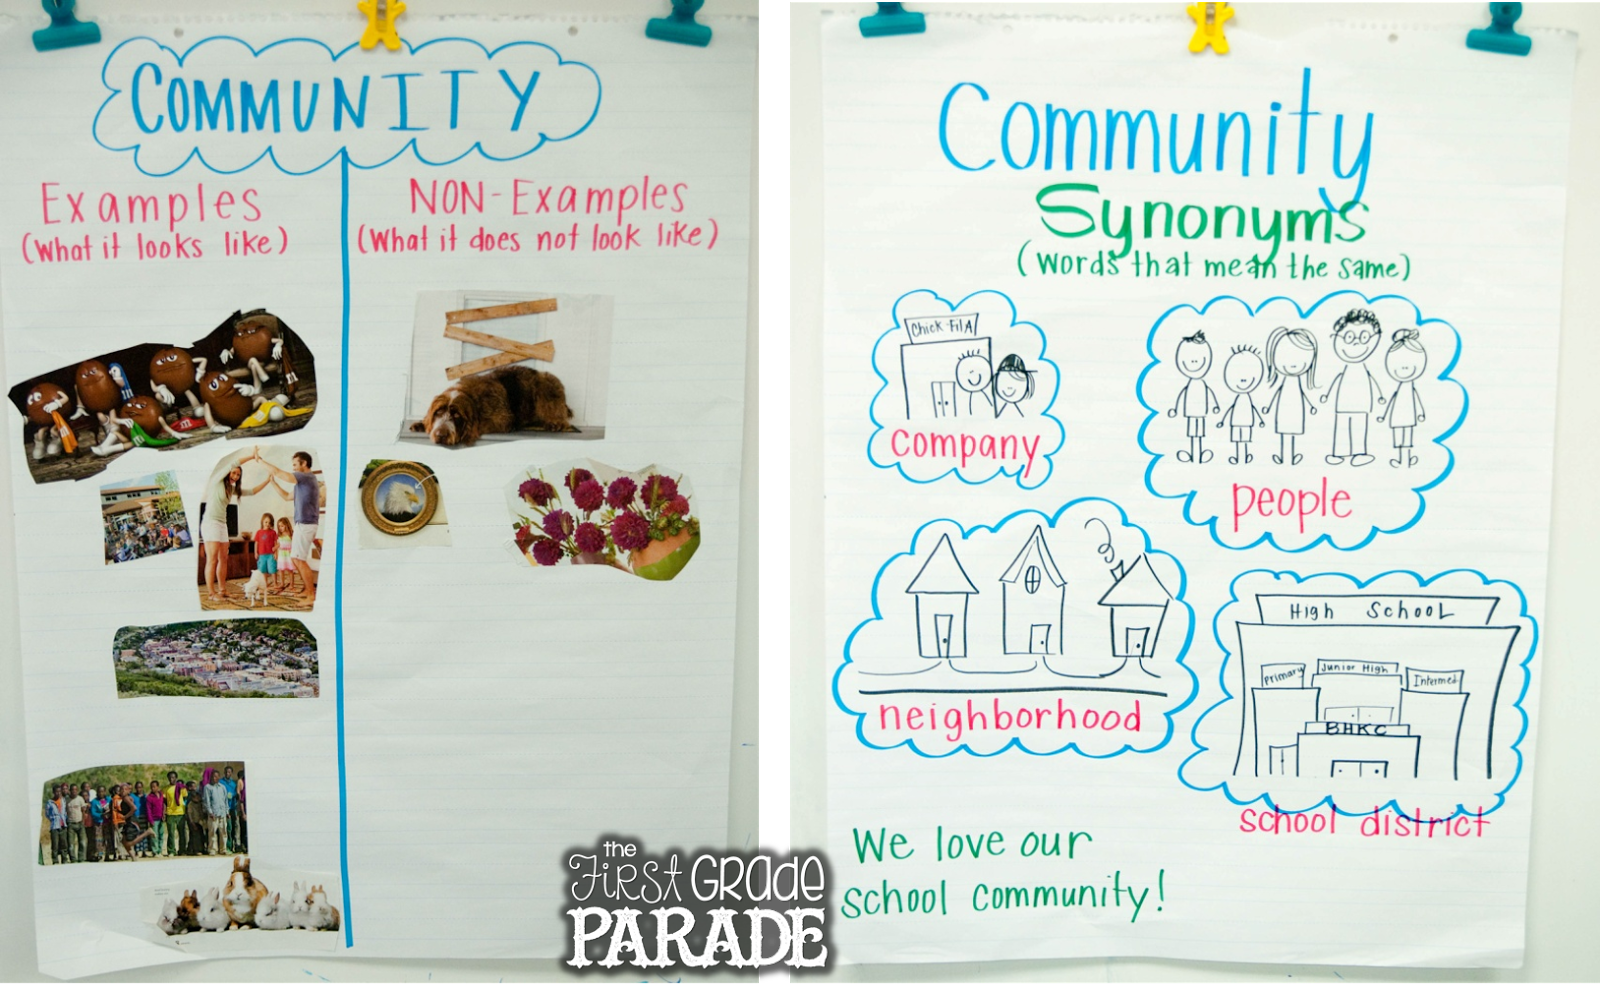 COMMUNITY
Examples
(What it looks like)
NON-Examples
(What it does not look like)
Community
Synonyms
(words that mean the same)
Chick-Fil A
company
people
neighborhood
High School
Primary
Junior High
Intermed
BHKC
school district
We love our
school community!
the
First Grade
PARADE